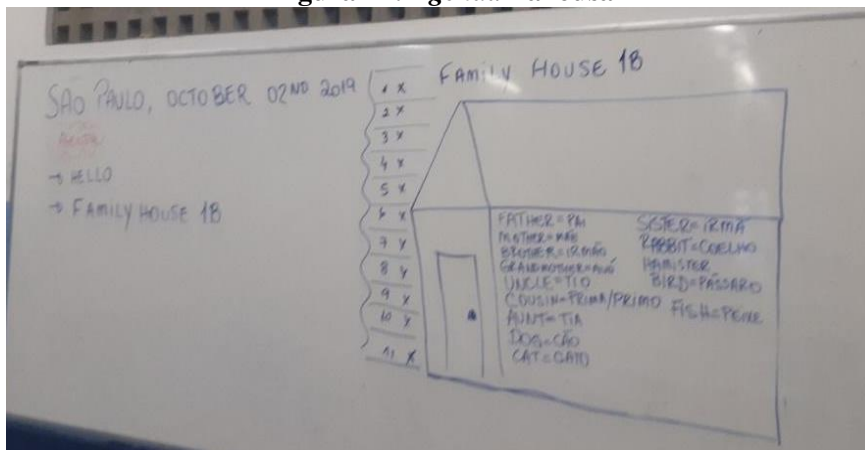 SÃO PAULO, OCTOBER 02ND 2019
AGENDA
→ HELLO
→ FAMILY HOUSE 1B
1 X
2 X
3 X
4 X
5 X
6 X
7 X
8 X
9 X
10 X
11 X
FAMILY HOUSE 1B
FATHER = PAI
MOTHER = MÃE
BROTHER = IRMÃO
GRANDMOTHER = AVÓ
UNCLE = TIO
COUSIN = PRIMA/PRIMO
AUNT = TIA
DOG = CÃO
CAT = GATO
SISTER = IRMÃ
RABBIT = COELHO
HAMISTER
BIRD = PÁSSARO
FISH = PEIXE